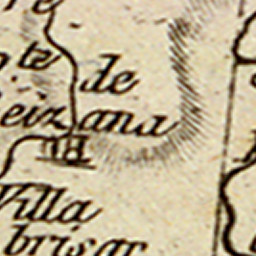 te de
eizana
Villa
brisar